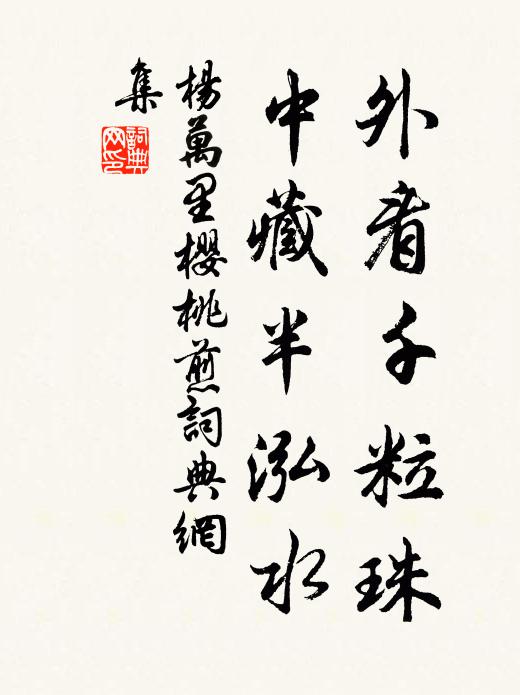 外看千粒珠
中藏半泓水
楊萬里櫻桃煎詞典網
集
詞典
網印